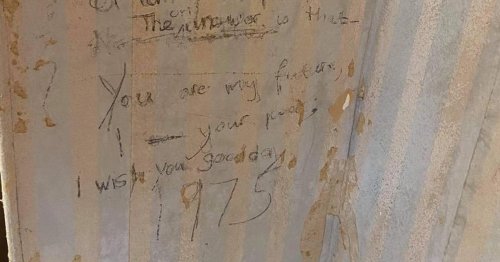 The only answer is that
You are my future,
I your past;
I wish you good day.
1975